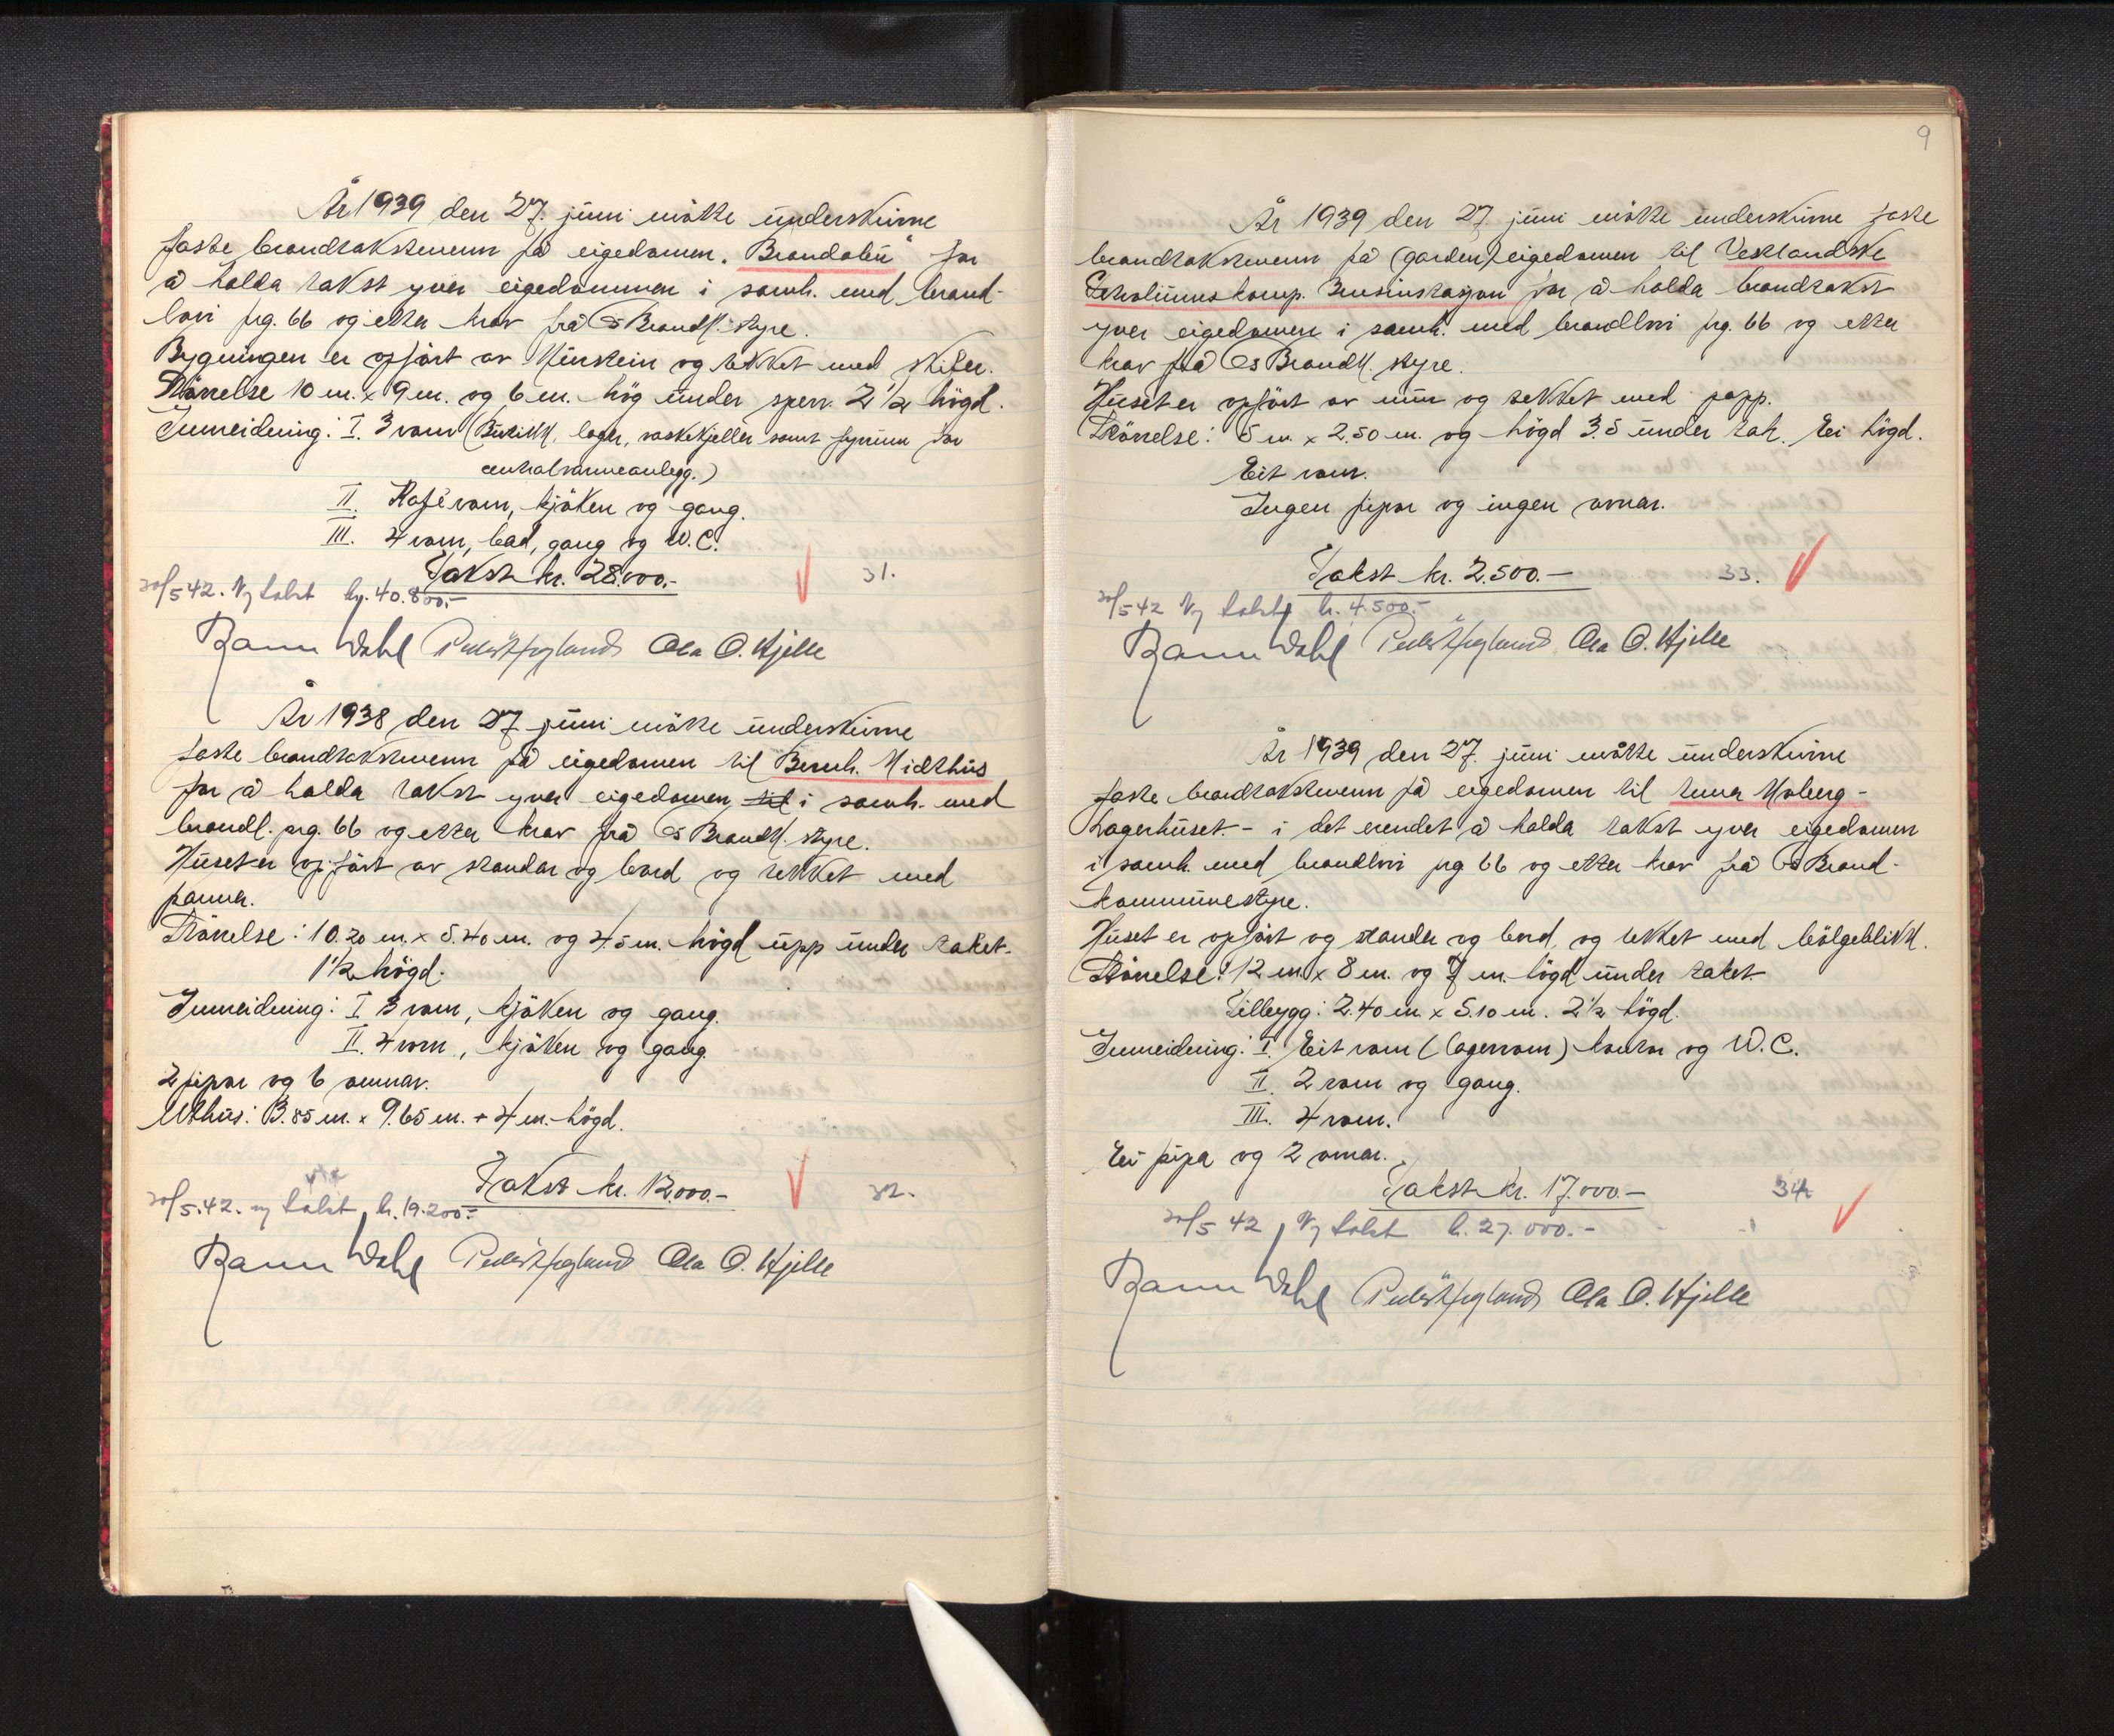 År 1939 den 27. juni møtte underskrivne
faste brandtakstmenn på eigedomen "Brandabu" for
å halda takst yver eigedommen i samh. med brand-
lovi prg. 66 og etter krav frå Os Brandk. styre.
Bygningen er opført av Murstein og tekket med skifer.
Störrelse 10 m. x 9 m. og 6 m. høg under sperr. 2 1/2 høgd.
Innreidning: I. 3 rom (Butikk, lager, vaskekjeller samt fyrrum for
centralvarmeanlegg.)
II. Kaférom, kjöken og gang.
III. 4 rom, bad, gang og W.C.
Takst kr. 28.000.-
31.
20/5 42. Ny takst kr. 40.800.-
Wahl Ola O. Hjelle
År 1938 den 27 juni møtte underskrivne
faste brandtakstmenn på eigedomen til Bernh. Midthus
for å halda takst yver eigedomen til i samh. med
brandl. prg. 66 og etter krav frå Os Brandk. styre.
Huset er opfört av standar og bord og tekket med
panner.
Störrelse: 10.20 m. x 5.40 m. og 4.5 m. högd upp under taket.
1 1/2 högd.
Innreidning: I 3 rom, kjöken og gang.
II. 4 rom, kjöken og gang.
2 pipor og 6 omnar.
Uthus: 3.85 m. x 9.65 m. + 4 m. högd.
Takst kr. 12.000.-
32.
20/5.42. ny takst kr. 19.200.-
Wahl Ola O. Hjelle
9
År 1939 den 27. juni møtte underskrivne faste
brandtakstmenn på (garden) eigedomen til Vestlandske
Petroleumskomp. Bensinstasjon for å halda brandtakst
yver eigedomen i samh. med brandlovi prg. 66 og etter
krav frå Os Brandk. styre.
Huset er opfört av mur og tekket med papp.
Störrelse: 5 m. x 2.50 m. og högd 3.5 under tak. Ei högd.
Eit rom.
Ingen pipor og ingen omnar.
Takst kr. 2.500.-
33.
20/5 42 Ny takst kr. 4.500.-
Wahl Ola O. Hjelle
År 1939 den 27. juni møtte underskrivne
faste brandtakstmenn på eigedomen til Moberg -
Lagerhuset - i det erendet å halda takst yver eigedomen
i samh. med brandlovi prg 66 og etter krav frå Os Brand-
kommunestyre.
Huset er opfört og stander og bord, og tekket med bölgeblikk.
Störrelse: 12 m. x 8 m. og 7 m. högd under taket.
Tilbygg: 2.40 m x 5.10 m. 2 1/2 högd.
Innreidning: I. Eit rom (lagerrom) kontor og W.C.
II. 2 rom og gang.
III. 4 rom.
Ei pipa og 2 omnar.
Takst kr. 17.000.-
34
20/5 42 Ny takst kr. 27.000.-
Wahl Ola O. Hjelle